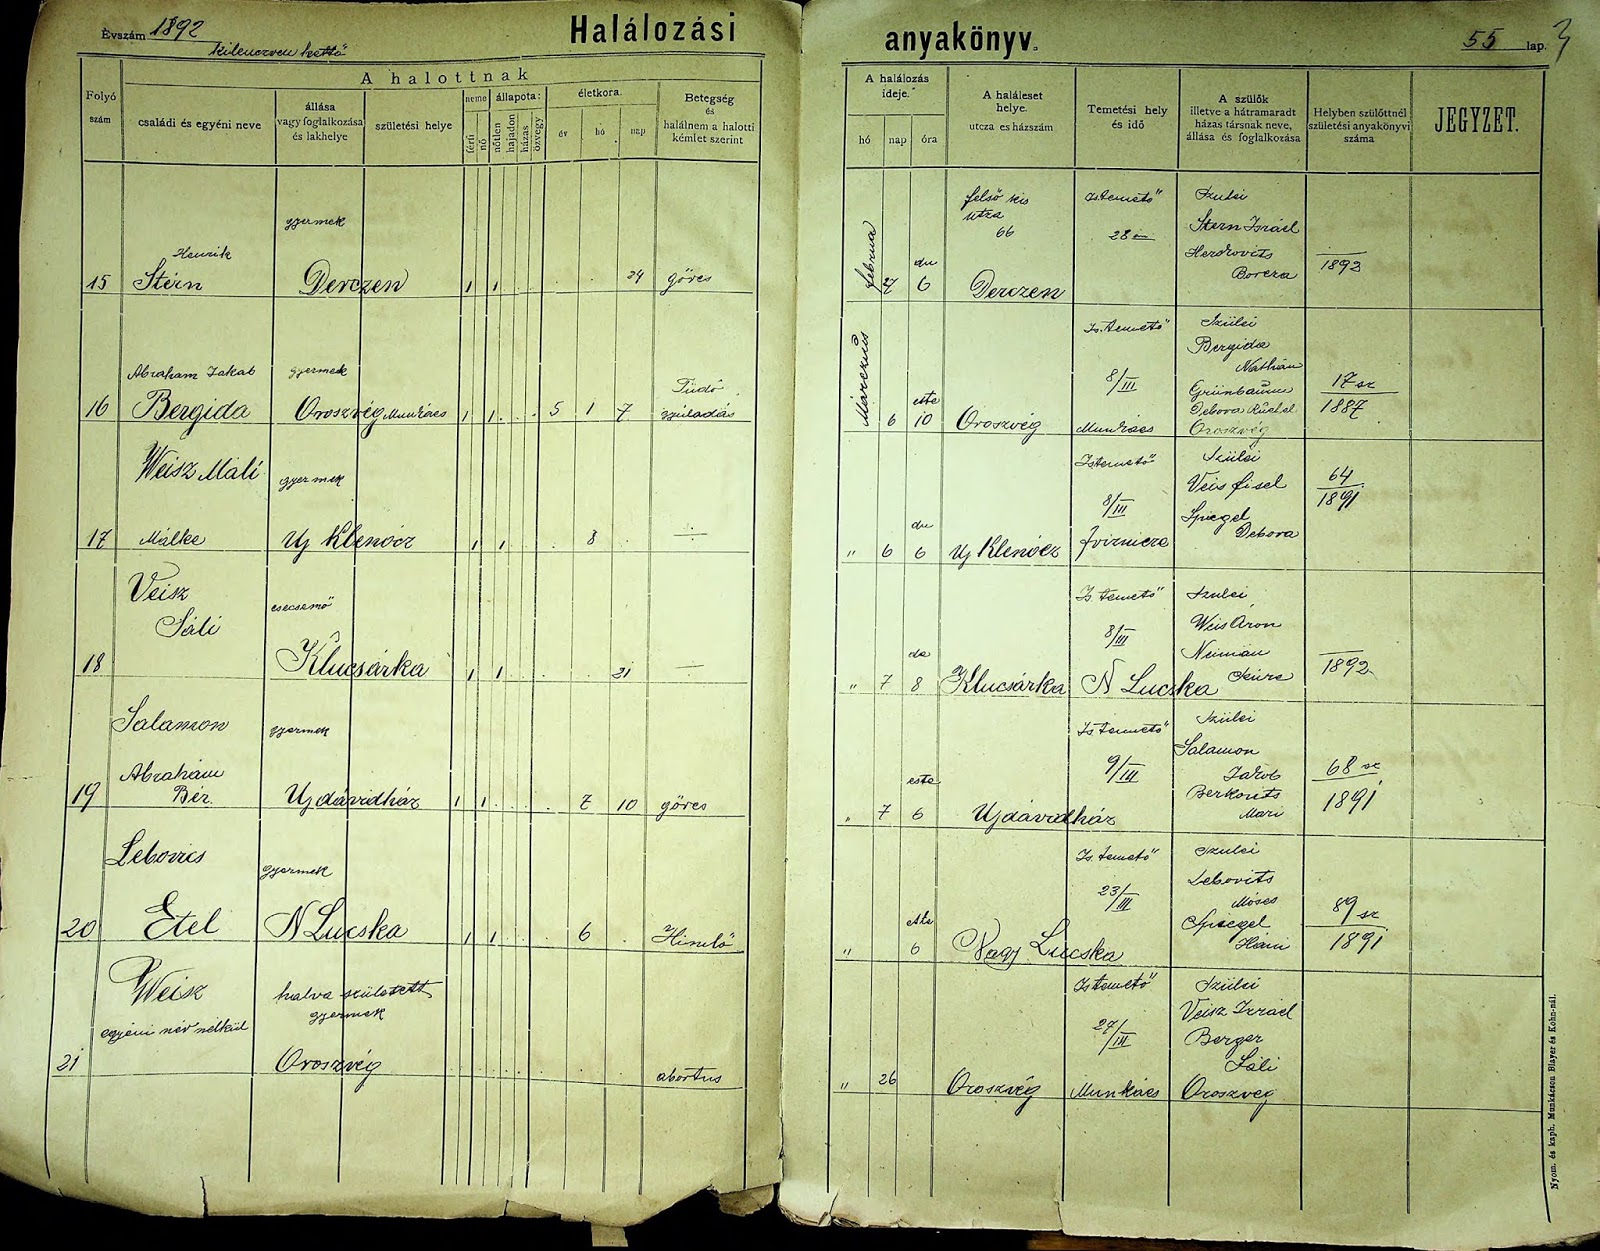 Évszám 1892
kilenczven kettő
Halálozási anyakönyv.
55 lap.
A halottnak
Folyó szám
családi és egyéni neve
állása vagy foglalkozása és lakhelye
születési helye
neme
férfi
nő
állapota:
nőtlen
hajadon
házas
özvegy
életkora.
év
hó
nap
Betegség és halálnem a halotti kémlet szerint
A halálozás ideje.
hó
nap
óra
A haláleset helye.
utcza es házszám
Temetési hely és idő
A szülők illetve a hátramaradt házas társnak neve, állása és foglalkozása
Helyben szülöttnél születési anyakönyvi száma
JEGYZET.
15 Henrik Stern gyermek Derczen 1 1 24 görcs
februa 27 du 6 felső kis utza 66 Derczen Is. temető 28 Szülei Stern Izráel Herskovits Borcza 1892
16 Abraham Jakab Bergida gyermek Oroszvég Munkács 1 1 5 1 7 Tüdő gyuladás
Márczius 6 este 10 Oroszvég Is. temető 8/III Munkács Szülei Bergida Náthán Grünbaum Debora Ruchel Oroszvég 17 sz 1887
17 Weisz Máli Málke gyermek Uj Klenócz 1 1 8
" 6 du 6 Uj Klenócz Is temető 8/III Szülei Veis fisel Spiegel Debora 64 1891
18 Veisz Sáli csecsemő Klucsárka 1 1 21
" 7 de 8 Klucsárka Is. temető 8/III N Lucska Szulei Weis Áron 1892
19 Salamon Abrahám Bér. gyermek Ujdávidház 1 1 7 10 görcs
" 7 este 6 Ujdávidház Is temető 9/III Szülei Salamon Jakob Berkovits Mari 68 sz 1891
20 Lebovics Etel gyermek N Lucska 1 1 6 Himlő
" este 6 Nagy Lucska Is. temető 23/III Szulei Lebovits Móses Spiegel Hani 89 sz 1891
21 Weisz egyéni név nélkül halva született gyermek Oroszvég abortus
" 26 Oroszvég Is temető 27/III Munkács Szülei Veisz Izráel Berger Sáli Oroszvég
Nyom. és kaph. Munkácson Blayer és Kohn-nál.